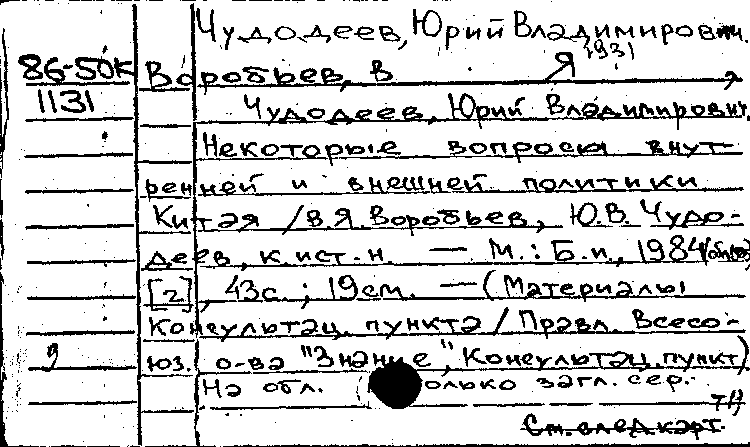 Чудодеев, Юрий Владимирович.
1931
86-50К Воробьев, В Я
1131 Чудодеев, Юрий Владимирович.
Некоторые вопросы внут-
ренней и внешней политики
Китая / В.Я. Воробьев, Ю.В. Чудо-
деев, к.ист.н. — М.: Б.и., 1984
[2], 43с.; 19см. — (Материалы
Консультац. пункта / Правл. Всесо-
юз. о-ва "Знание", Консультац. пункт)
На обл. только загл. сер.
См. след. карт.